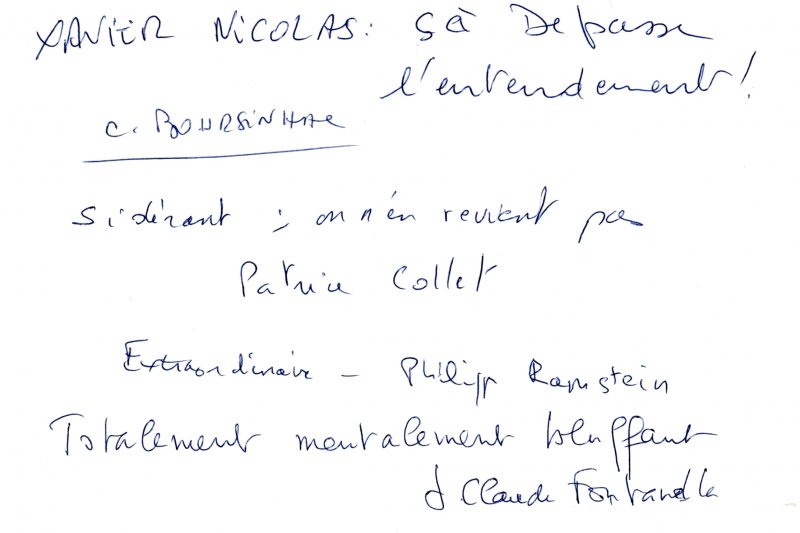 XAVIER NICOLAS : Sà Dépasse
l'entendement !
C. BOURSINHAC
Sidérant : on n'en revient pas
Patrice Collet
Extraordinaire - Philipp Ramstein
Totalement mentalement bluffant
J Claude Fontanella